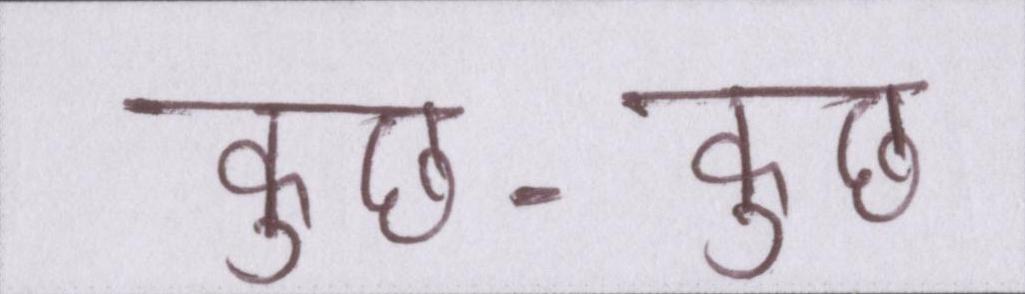 कुछ-कुछ